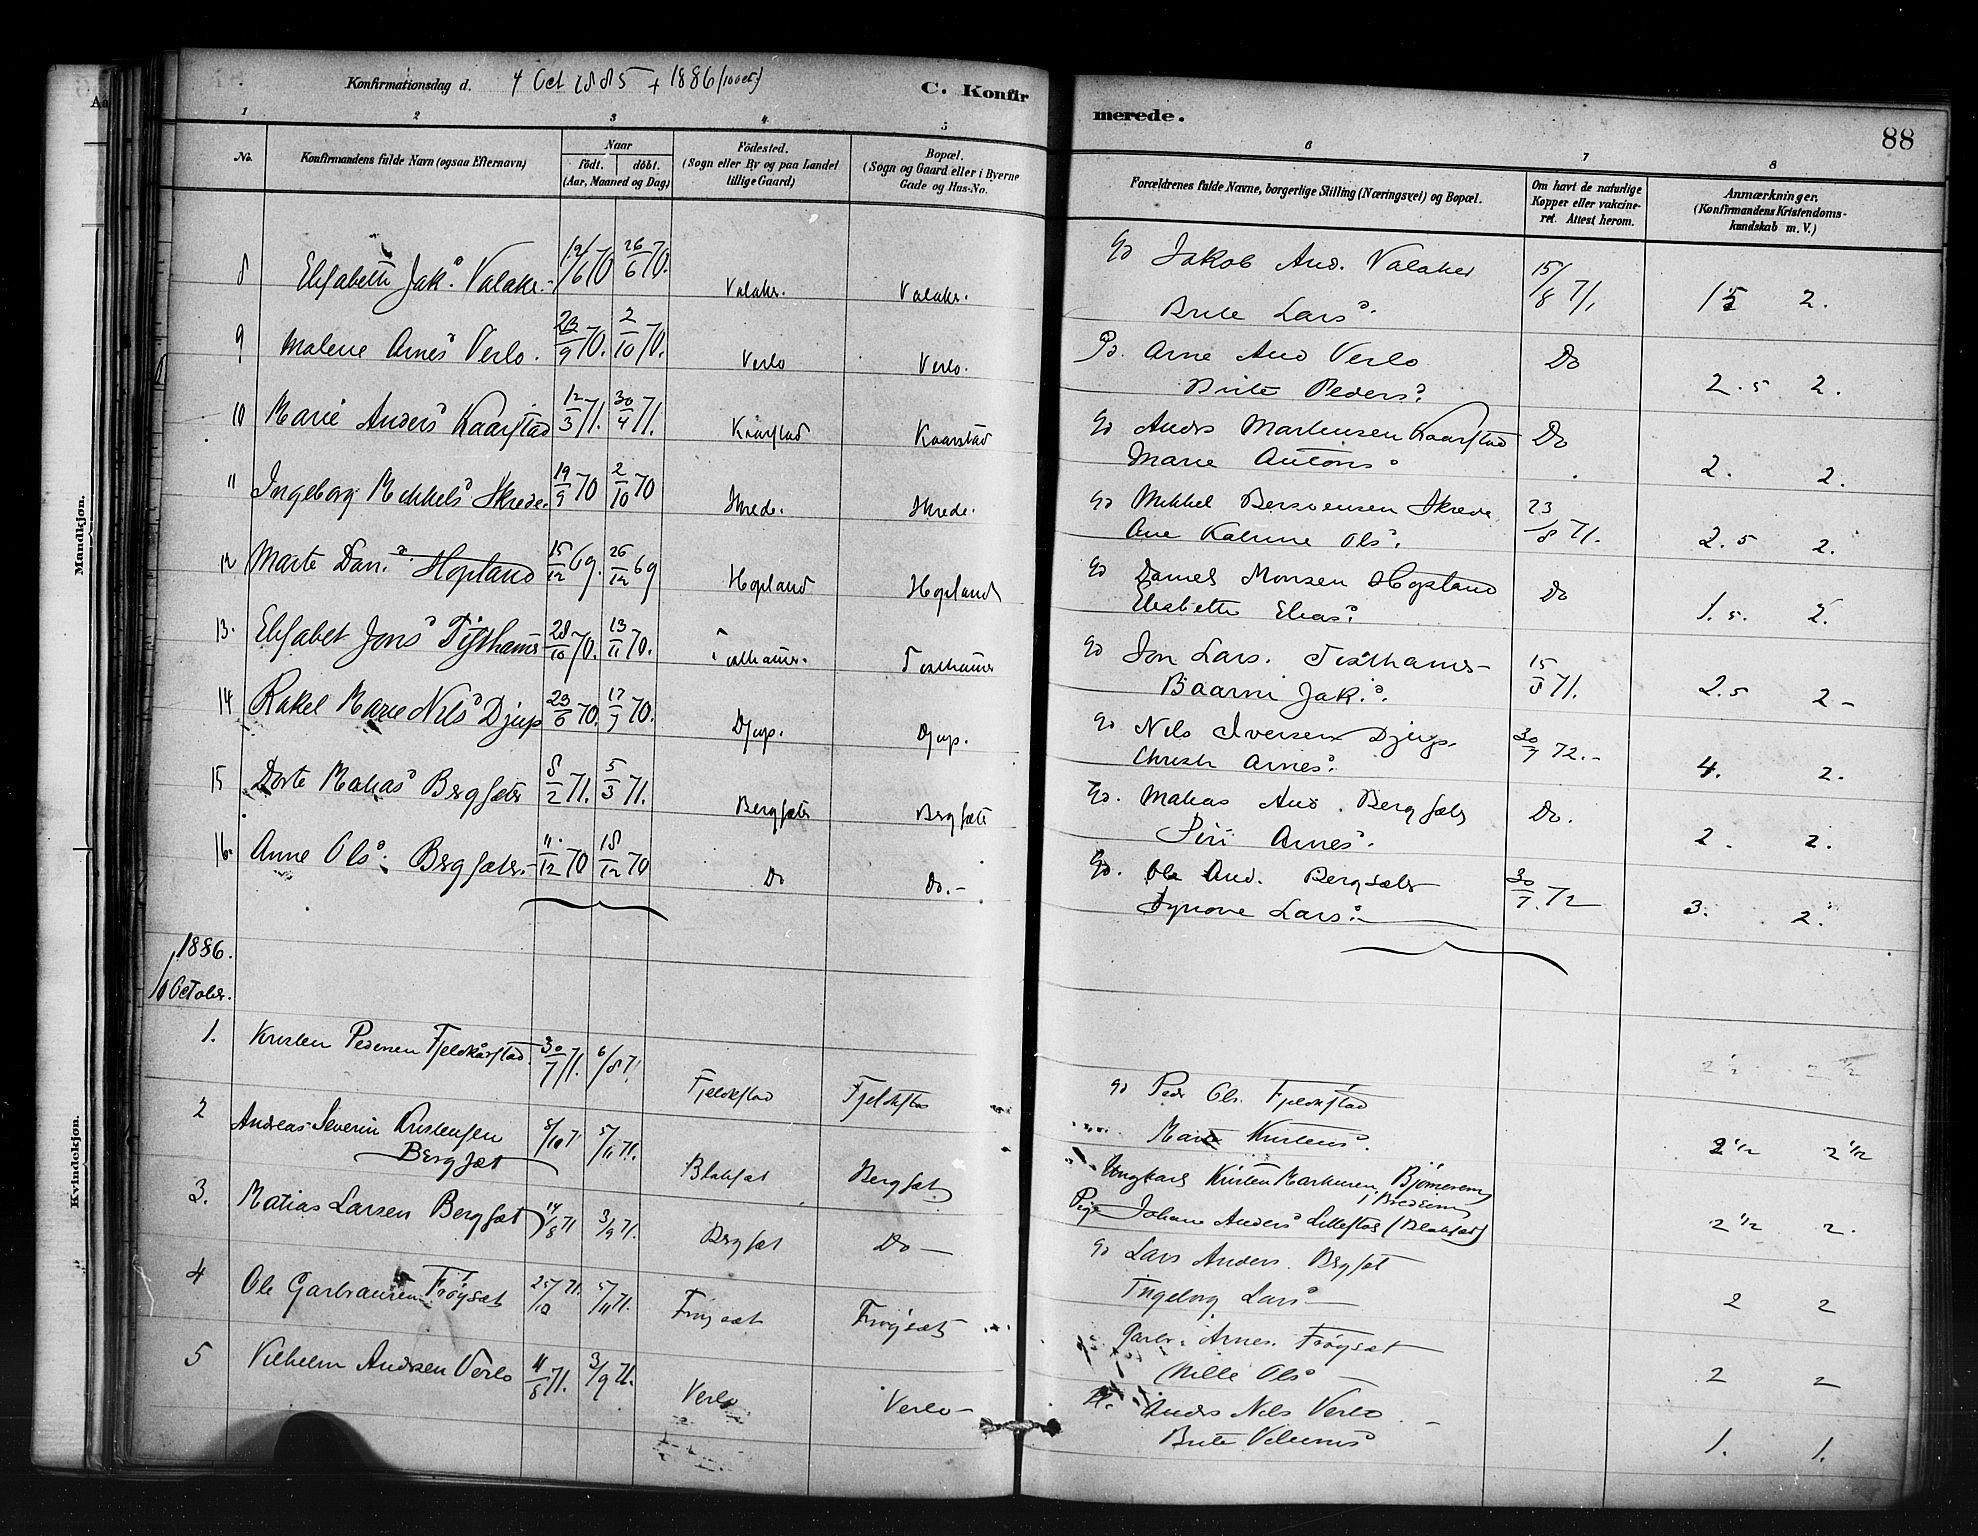 Konfirmationsdag d. 4 Oct 1885 + 1886 (10 oct.)
C. Konfirmerede.
88
1 2 3 4 5 6 7 8
No.
Konfirmandens fulde Navn (ogsaa Efternavn)
Naar
födt. döbt.
(Aar, Maaned og Dag)
Födested.
(Sogn eller By og paa Landet
tillige Gaard)
Bopæl.
(Sogn og Gaard eller i Byerne
Gade og Hus-No.
Forældrenes fulde Navne, borgerlige Stilling (Næringsvei) og Bopæl.
Om havt de naturlige
Kopper eller vakcine-
ret. Attest herom.
Anmærkninger.
(Konfirmandens Kristendoms-
kundskab m. V.)
Mandkjøn.
Kvindekjøn.
8 Elisabeth Jaks. Valaker 12/6 70 26/6 70. Valaker. Valaker. Gd Jakob And. Valaker 15/8 71. 15 2.
Brite Lars.
9 Malene Arnes Verlo. 23/9 70. 2/10 70. Verlo Verlo. Gd. Arne And Verlo Do
Brite Peders. 2.5 2.
10 Marie Anders Kaarstad 12/3 71. 30/4 71. Kaarstad Kaarstad Gd Anders Martensen Kaarstad Do
Marie Antons 2. 2.
11 Ingeborg Mikkels Skrede. 19/9 70 2/10 70 Skrede. Skrede. Gd Mikkel Skrede 23/8 71.
Ane Katrine Ols. 2.5 2.
12 Marte Dan. Hopland 15/12 69. 26/12 69 Hopland Hopland Gd Daniel Monsen Hopland Do
Elisabeth Elias. 1.5. 2.
13. Elisabet Jons Tisthamer 28/10 70. 13/11 70. Tisthamer. Tisthamer Gd Jon Lars. Tisthamer 15/8 71.
Baarni Jak. 2.5 2-
14 Rakel Marie Nils Djup 23/6 70. 17/7 70. Djup. Djup. Gd Nils Iversen Djup. 30/7 72.-
Christi Arnes. 4. 2.
15 Dorte Matias Bergsæter 8/2 71. 5/3 71. Bergsæter Bergsæter Gd. Matias And. Bergsæter Do.
Siri Arnes. 2. 2.
16. Anne Ols. Bergsæter 11/12 70 18/12 70 Do Do.- Gd. Ole And. Bergsæter 30/7. 72
Synove Lars. 3. 2.
1886.
10 October.
1. Kristen Pedersen Fjeldkårstad. 30/7 71. 6/8 71. Fjeldkstad Fjeldkstad Gd Peder Ols. Fjeldkstad
Marte Kristens. 2 1/2 2 1/2
2 Andreas Severin Kristensen 8/10 71 5/11 71. Blaksæt Bergsæt Ungkarl Kristen Markusen Bjørnereim
Bergsæt
i Breeim
Pige Johane Anders Lillestøl (Blaksæt) 2 1/2 2.
3. Matias Larsen Bergsæt 14/8 71 3/9 71. Bergsæt Do Gd Lars Anders. Bergsæt
Ingeborg Lars 2 2
4 Ole Garbransen Frøysæt 25/10 71. 5/11 71. Frøysæt Frøysæt Garbr. Arnes. Frøysæt
Mille Ols 2 2
5 Vilhelm Andersen Verlo 11/8 71. 3/9 71. Verlo Verlo- Pl. Anders Nils Verlo
Brite Villums 1. 1.